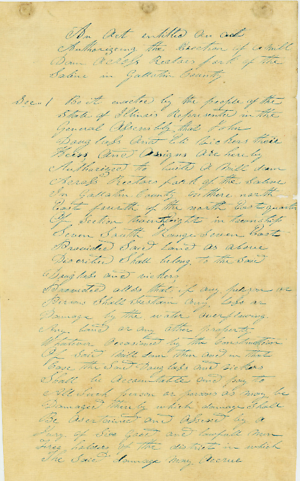 An Act entitled An act
Authorizing the Erection of a mill
Dam Across Rectors fork of the
Saline in Gallatin County.
Sec. 1 Be it enacted by the people of the
State of Illinois Represented in the
General Assembly, that John
Douglass And Vickers their
Heirs And Assigns Are hereby
Authorized to build A Mill Dam
Across Rectors fork of the Saline
In Gallatin County, on the north
East fourth of the north East quarter
Of Section in township
Seven South Range Seven East
Provided Said Land as Above
Described Shall belong to the Said
Douglass and Vickers
Provided also that if any person or
Persons Shall Sustain Any Loss or
Damage by the water overflowing
Any Land or any other property
Whatever Occasioned by the Construction
Of Said Mill Dam then and in that
Case the Said Douglass and Vickers
Shall be Accountable and pay to
All Such person or persons as may be
Damaged thereby which damage Shall
Be Ascertained and Assessed by a
Jury of good and lawful men
Free holders of the district in which
The Said damage may Accrue